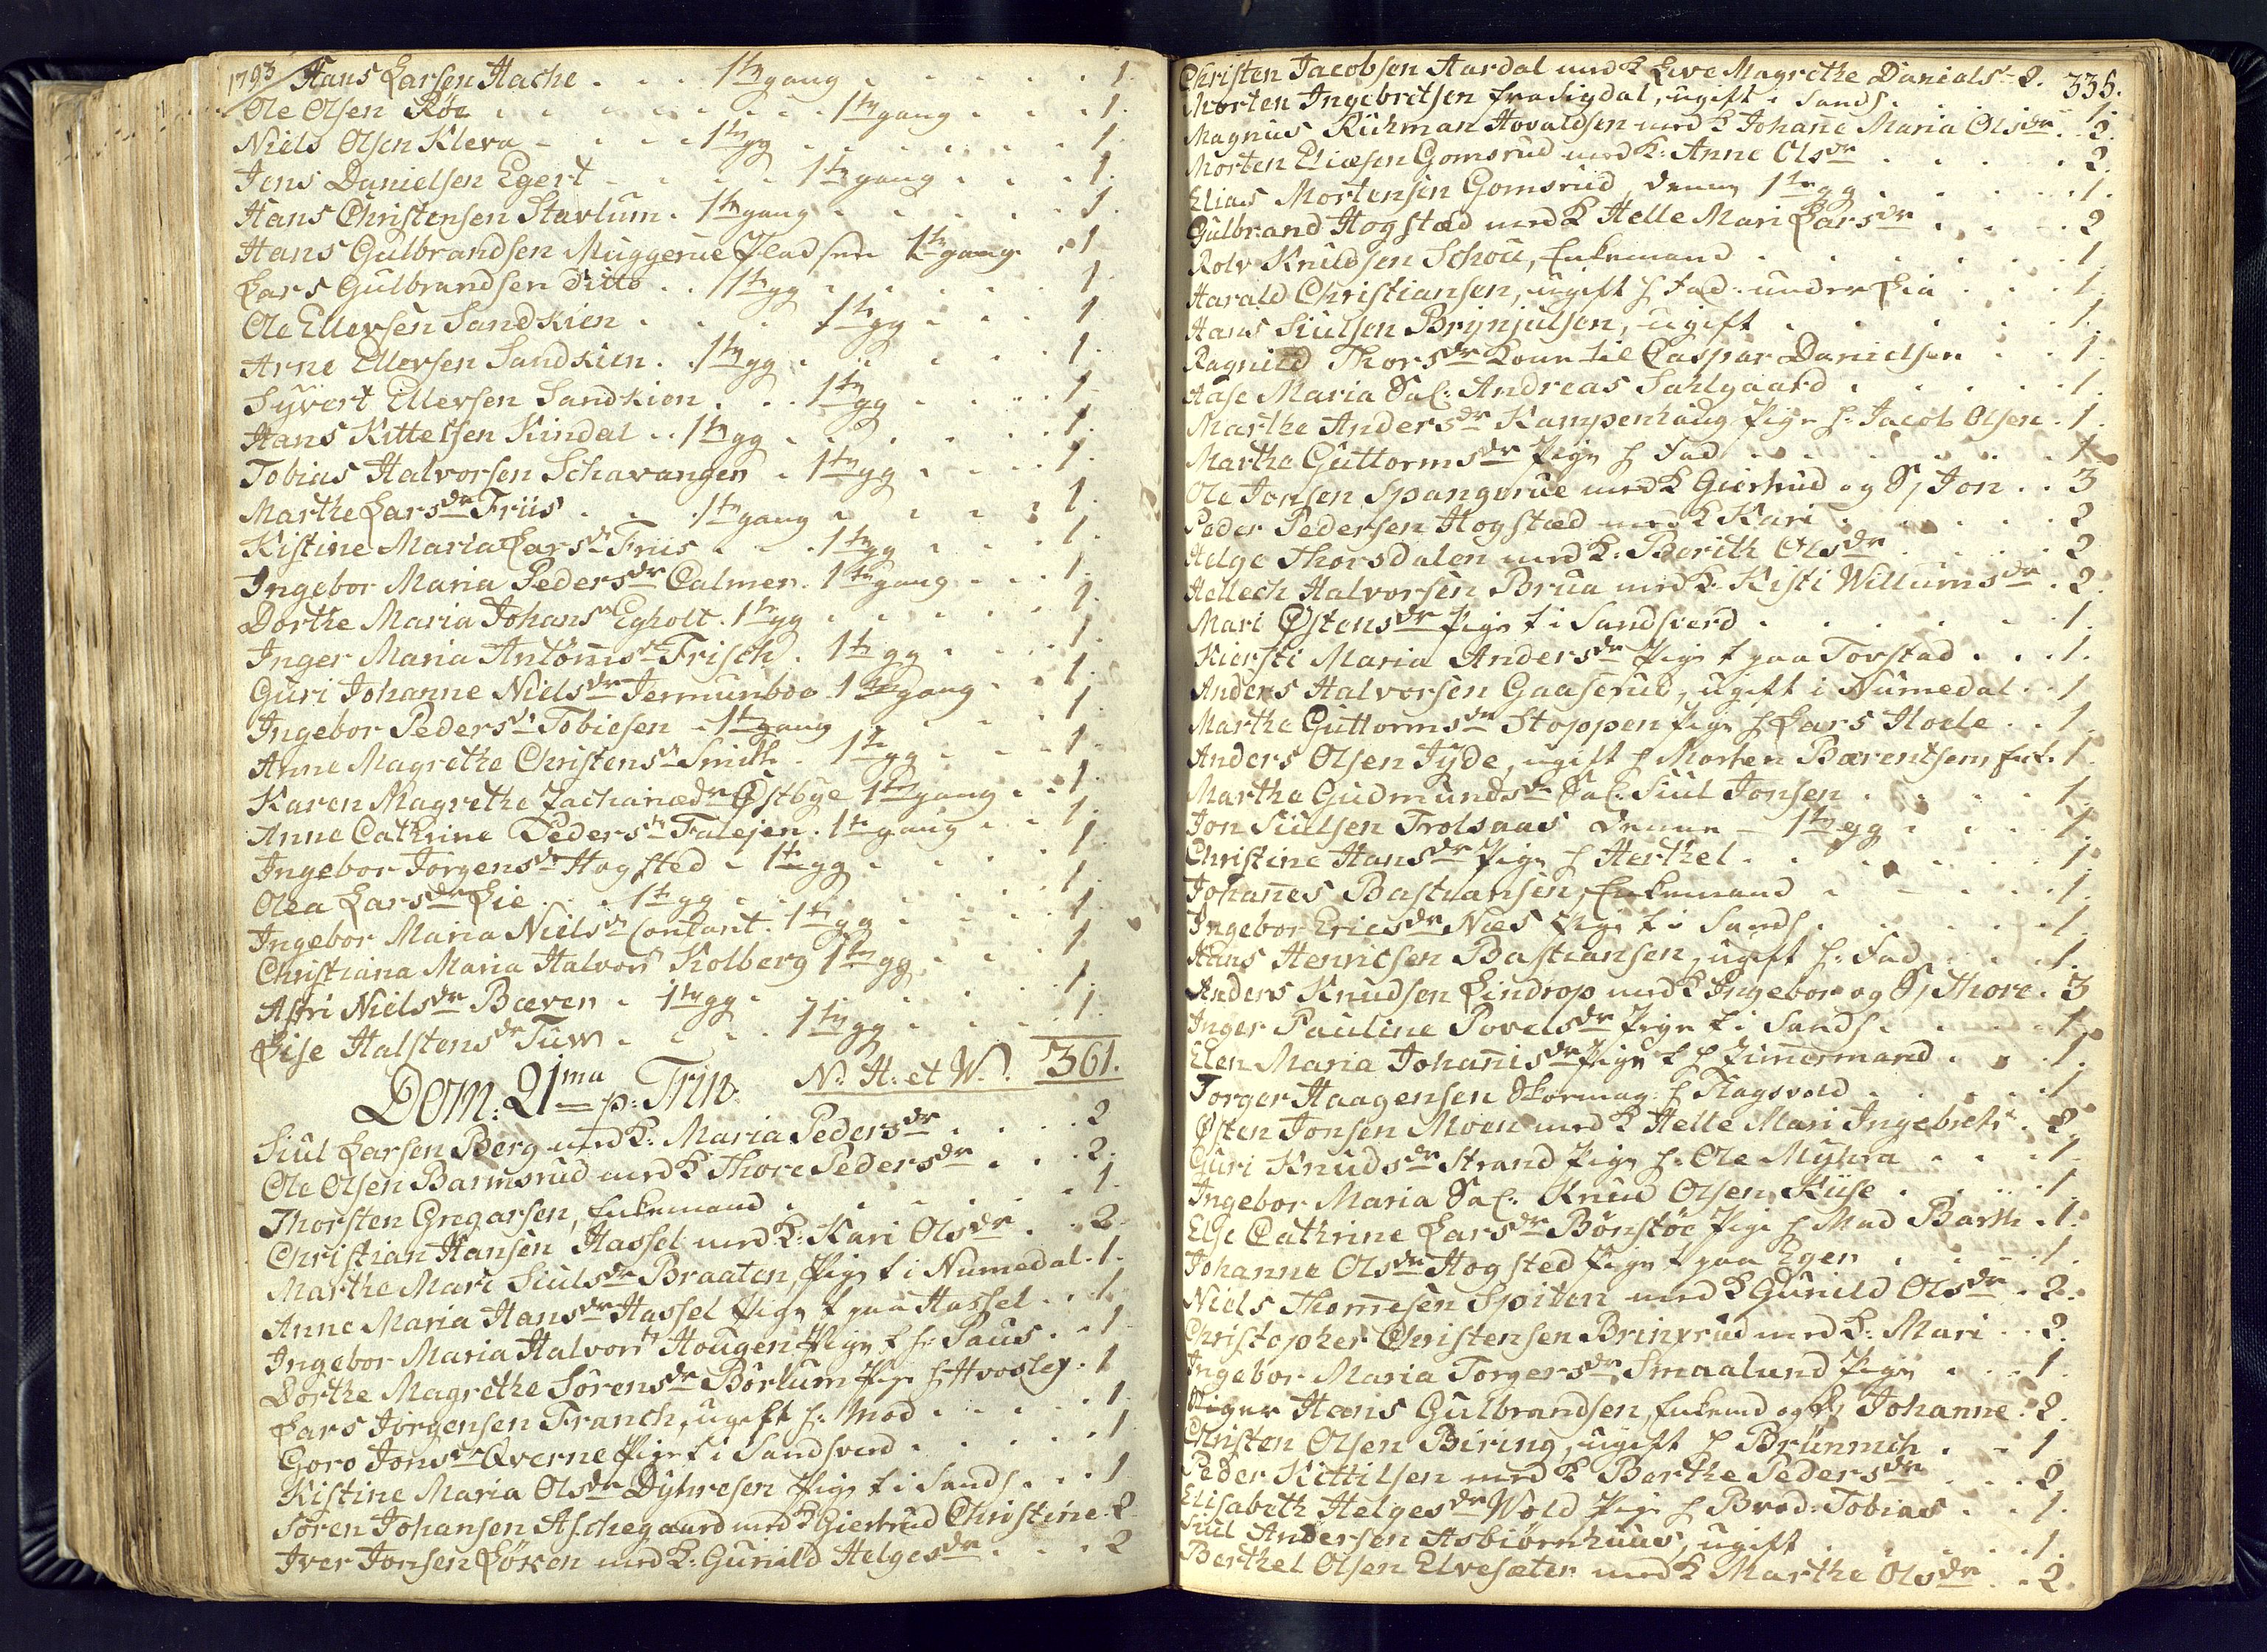 1793 Hans Larsen Hache . . . 1te gang . . . . 1.
Ole Olsen Röe . . . . 1te gang . . . 1.
Niels Olsen Kleva . . . 1te gg . . . . 1.
Jens Danielsen Egert . . . 1te gang . . . 1.
Hans Christensen Starlum . 1te gang . . . . 1.
Hans Gulbrandsen Muggerue Pladsen 1te gang . 1
Lars Gulbrandsen Ditto . . 1te gg . . . . 1.
Ole Ellevsen Sandkien . . . 1te gg . . . 1
Arne Ellevsen Sandkien . . 1te gg . . . . 1.
Syvert Ellevsen Sandkien . . . 1te gg . . . 1
Hans Kittelsen Kindal . . 1te gg . . . . 1.
Tobias Halvorsen Schavangen . 1te gg . . . 1.
Marthe Larsdr Friis . . . 1te gang . . . . 1.
Kistine Maria Larsdr Friis . . . 1te gg . . . 1.
Ingebor Maria Pedersdr Calmer . 1te gang . . . 1.
Dorthe Maria Johansdr Egholt . 1te gg . . . . 1.
Inger Maria Antönisdr Frisch . 1te gg . . . 1.
Guri Johanne Nielsdr Jermunboe . 1te gang . . 1.
Ingebor Pedersdr Tobiesen . 1te gang . . . 1.
Anne Magrethe Christensdr Smith . 1te gg . . . 1.
Karen Magrethe Zachariædr Østbye 1te gang . . 1.
Anne Cathrine Pedersdr Falejen . 1te gang . . 1.
Ingebor Jörgensdr Hogsted . 1te gg . . . 1.
Olea Larsdr Lie . . . 1te gg . . . . 1.
Ingebor Maria Nielsdr Contant . 1te gg . . . 1.
Christiana Maria Halvorsdr Kolberg 1te gg . . . 1
Astri Nielsdr Bæver . 1te gg . . . . 1.
Lise Halstensdr Tuw . . . 1te gg . . . . 1.
Dom: 21ma p: Trin. N. H: et W. 361.
Siul Larsen Berg med K: Maria Pedersdr . . . . 2
Ole Olsen Barmsrud med K Thore Pedersdr . . . 2.
Thorsten Gregarsen, Enkemand . . . . . 1.
Christian Hansen Hassel med K: Kari Olsdr . . 2
Marthe Mari Siulsdr Braaten, Pige t i Numedal . 1.
Anne Maria Hansdr Hassel Pige t paa Hassel . . 1.
Ingebor Maria Halvorsdr Hougen Pige t h: Paus . . 1
Dorthe Magrethe Sörensdr Börlum Pige h: Hvoslef . 1
Lars Jörgensen Franch, ugift h: Mod . . . . 1
Goro Jonsdr Qverne Pige t i Sandsverd . . . . 1
Kistine Maria Olsdr Dyhresen Pige t i Sands . . . 1
Sören Johansen Aschegaard med K Giertrud Christine . 2
Iver Jonsen Löken med K: Gunild Helgesdr . . . 2
335.
Christen Jacobsen Aardal med K Eve Magrethe Danielsdr 2.
Morten Ingebretsen fra Sigdal, ugift i Sands . . . 1.
Magnus Richman Hovaldsen med K Johane Maria Olsdr . 2.
Morten Eliæsen Gomsrud med K: Anne Olsdr . . . . 2
Elias Mortensen Gomsrud, denne 1te gg . . . . 1.
Gulbrand Hogstæd med K Helle Mari Larsdr . . . . 2
Rolv Knudsen Schou, Enkemand . . . . . 1.
Harald Christiansen, ugift h Fad: under Lia . . . 1.
Hans Siulsen Brynjulsen, ugift . . . . . 1.
Ragnild Thorsdr Kone til Caspar Danielsen . . 1.
Aase Maria Sal: Andreas Sahlgaard . . . . 1.
Marthe Andersdr Kampenhaug Pige h: Jacob Olsen . 1.
Marthe Guttormsdr Pige h Fad . . . . . . 1
Ole Jonsen Spangerue med K Giertrud og S: Jon . . 3
Peder Pedersen Hogstæd med K Kari . . . . . 2
Helge Thorsdalen med K: Berith Olsdr . . . . 2
Hellech Halvorsen Brua med K: Kisti Willumsdr . 2.
Mari Østensdr Pige t i Sandsverd . . . . . 1.
Kiersti Maria Andersdr Pige t paa Torstad . . . 1.
Anders Halvorsen Gaaserud, ugift i Numedal . . 1
Marthe Guttormsdr Stoppen Pige h Lars Hoele . . 1.
Anders Olsen Tyde, ugift h Morten Bærentsens Enk . 1.
Marthe Gudmundsdr Sal: Siul Jonsen . . . . 1.
Jon Siulsen Trolsaas denne – 1te gg . . . . 1.
Christine Hansdr Pige h Herthel . . . . . 1.
Johannes Bastiansen, Enkemand . . . . 1.
Ingebor Ericsdr Næs Pige t i Sands . . . . . 1.
Hans Henricsen Bastiansen, ugift h: Fad . . . . 1.
Anders Knudsen Lindrop med K Ingebor og S: Thore . 3
Inger Pauline Povelsdr Pige t i Sands . . . . 1.
Elen Maria Johanisdr Pige t h Zimmermand . . . 1.
Torger Haagensen Skormag: h Flagsvold . . . . 1
Østen Jonsen Moen med K Helle Mari Ingebretsdr . 2.
Guri Knudsdr Strand Pige h: Ole Myhra . . . 1.
Ingebor Maria Sal: Knud Olsen Kiise . . . . 1.
Else Cathrine Larsdr Bönstöe Pige h Mad Barth . 1.
Johanne Olsdr Hogsted Pige t paa Eger . . . . 1.
Niels Thomesen Spiten med K Gunild Olsdr . 2.
Christopher Christensen Brinxrud med K: Mari . . 2.
Ingebor Maria Torgersdr Smaalund Pige . . . 1.
Hans Gulbrandsen, Enkemd og Johanne . 2.
Christen Olsen Biring, ugift h Brünnich . . . 1
Peder Kittilsen med K Berthe Pedersdr . . . 2
Elisabeth Helgesdr Wold Pige h Brod: Tobias . . 1.
Siul Andersen Asbiörnhuus, ugift . . . . . 1.
Berthel Olsen Elvesæter med K Marthe Olsdr . . 2.